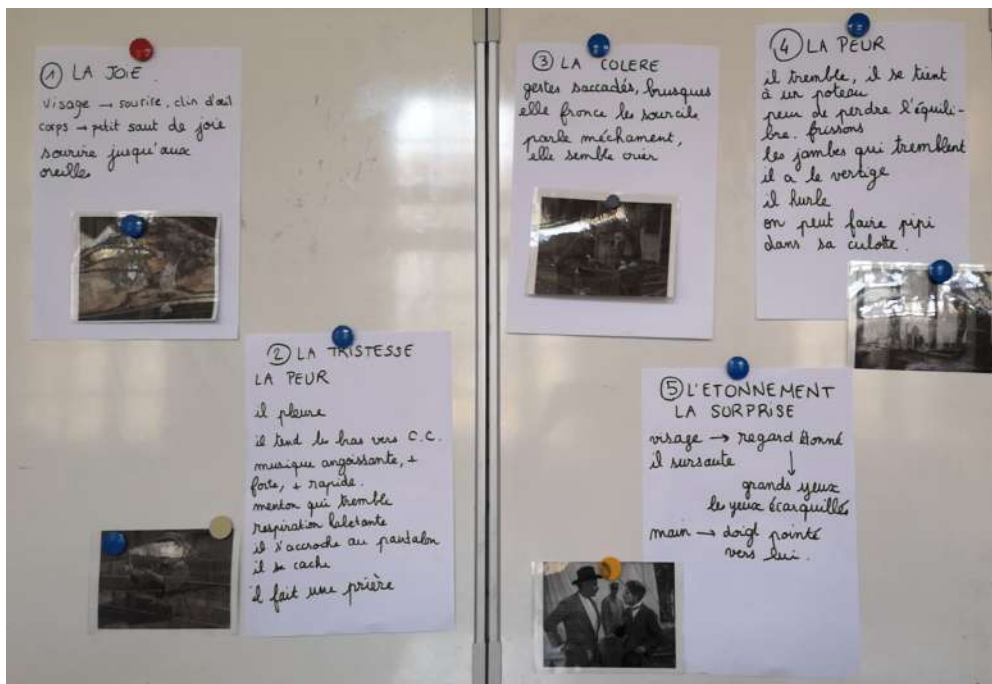 ① LA JOIE.
visage → sourire, clin d'œil
corps → petit saut de joie
sourire jusqu'aux
oreilles
② LA TRISTESSE
LA PEUR
il pleure
il tend les bras vers C.C.
musique angoissante, +
forte, + rapide.
menton qui tremble
respiration haletante
il s'accroche au pantalon
il se cache
il fait une prière
③ LA COLERE
gestes saccadés, brusques
elle fronce les sourcils
parle méchament,
elle semble crier
④ LA PEUR
il tremble, il se tient
à un poteau
peur de perdre l'équili-
bre. frissons
les jambes qui tremblent
il a le vertige
il hurle
on peut faire pipi
dans sa culotte.
⑤ L'ETONNEMENT
LA SURPRISE
visage → regard étonné
il sursaute
↓
grands yeux
les yeux écarquillés
main → doigt pointé
vers lui.